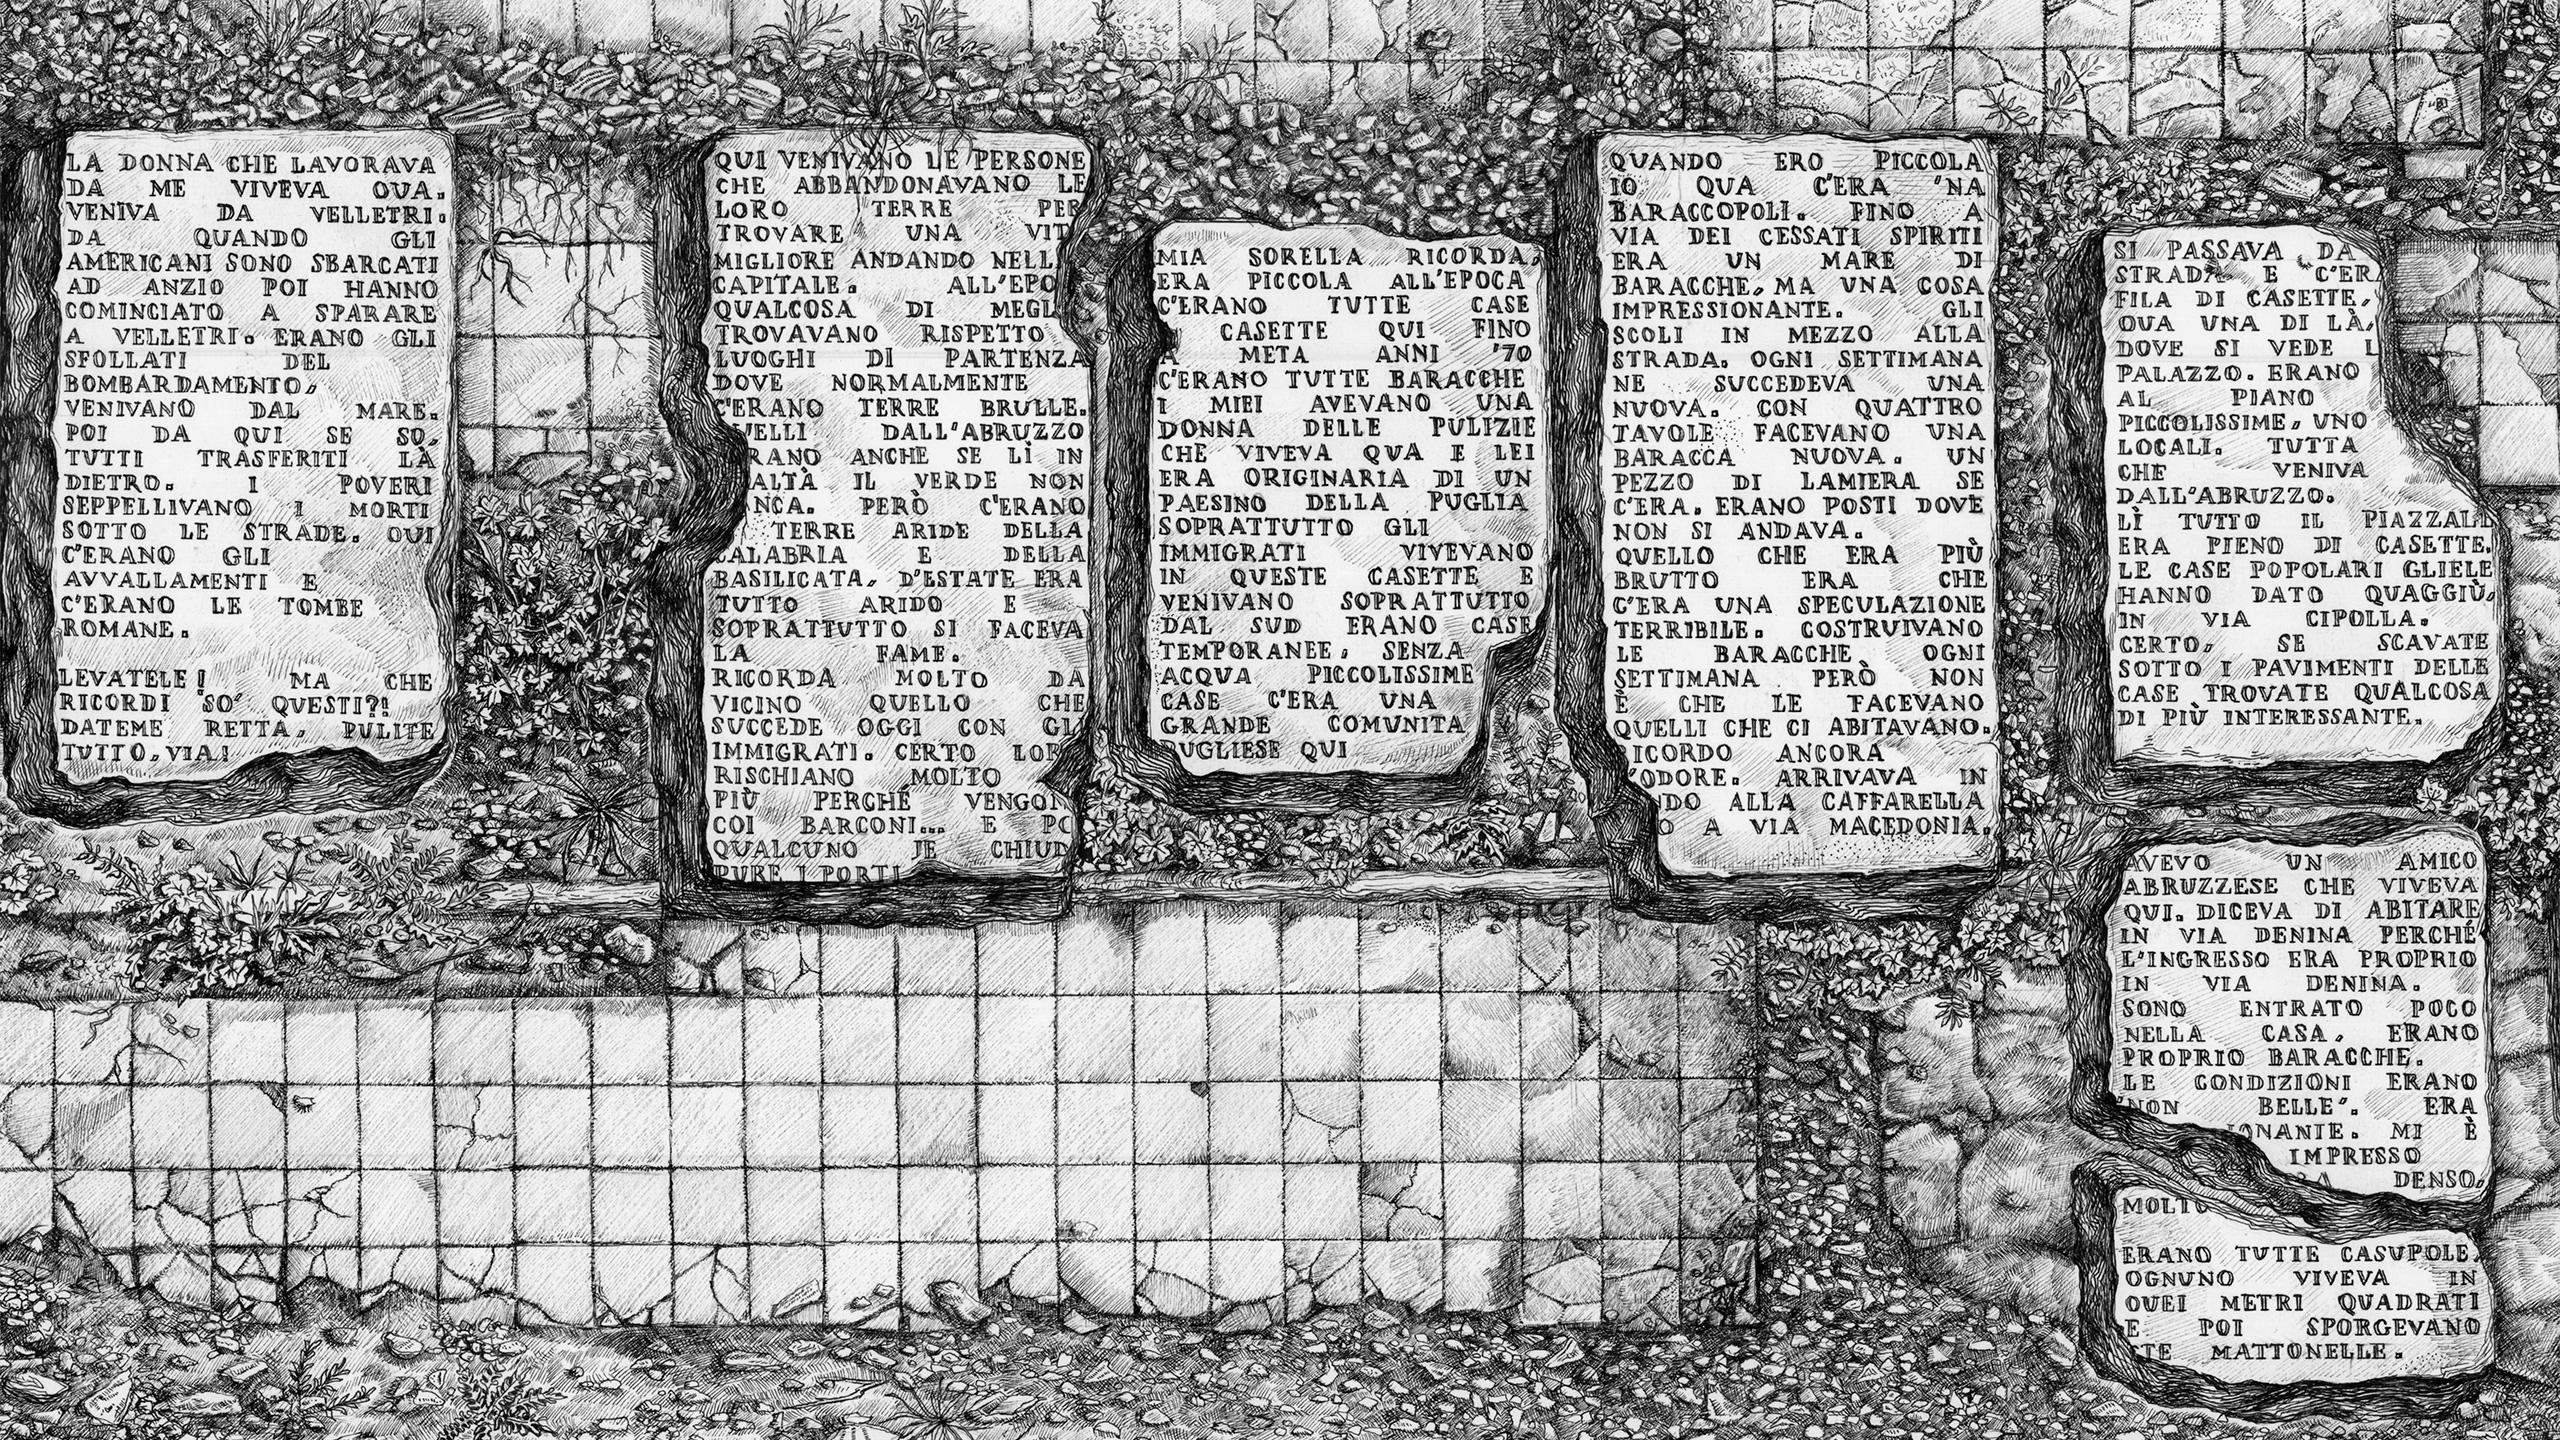 LA DONNA CHE LAVORAVA
DA ME VIVEVA QUA.
VENIVA DA VELLETRI.
DA QUANDO GLI
AMERICANI SONO SBARCATI
AD ANZIO POI HANNO
COMINCIATO A SPARARE
A VELLETRI. ERANO GLI
SFOLLATI DEL
BOMBARDAMENTO,
VENIVANO DAL MARE.
POI DA QUI SE SO,
TUTTI TRASFERITI LÀ
DIETRO. I POVERI
SEPPELLIVANO I MORTI
SOTTO LE STRADE. QUI
C'ERANO GLI
AVVALLAMENTI E
C'ERANO LE TOMBE
ROMANE.
LEVATELE! MA CHE
RICORDI SO' QUESTI?!
DATEME RETTA, PULITE
TUTTO, VIA!
QUI VENIVANO LE PERSONE
CHE ABBANDONAVANO LE
LORO TERRE PER
TROVARE UNA VIT
MIGLIORE ANDANDO NELL
CAPITALE. ALL'EPO
QUALCOSA DI MEGL
TROVAVANO RISPETTO
LUOGHI DI PARTENZA
DOVE NORMALMENTE
C'ERANO TERRE BRULLE.
UELLI DALL'ABRUZZO
RANO ANCHE SE LÌ IN
ALTÀ IL VERDE NON
NCA. PERÒ C'ERANO
TERRE ARIDE DELLA
CALABRIA E DELLA
BASILICATA, D'ESTATE ERA
TUTTO ARIDO E
SOPRATTUTTO SI FACEVA
LA FAME.
RICORDA MOLTO DA
VICINO QUELLO CHE
SUCCEDE OGGI CON GLI
IMMIGRATI. CERTO LOR
RISCHIANO MOLTO
PIÙ PERCHÉ VENGON
COI BARCONI... E PO
QUALCUNO JE CHIUD
PURE I PORTI
MIA SORELLA RICORDA,
ERA PICCOLA ALL'EPOCA
C'ERANO TUTTE CASE
CASETTE QUI FINO
A META ANNI '70
C'ERANO TUTTE BARACCHE
I MIEI AVEVANO UNA
DONNA DELLE PULIZIE
CHE VIVEVA QUA E LEI
ERA ORIGINARIA DI UN
PAESINO DELLA PUGLIA
SOPRATTUTTO GLI
IMMIGRATI VIVEVANO
IN QUESTE CASETTE E
VENIVANO SOPRATTUTTO
DAL SUD ERANO CASE
TEMPORANEE, SENZA
ACQUA PICCOLISSIME
CASE C'ERA UNA
GRANDE COMUNITA
PUGLIESE QUI
QUANDO ERO PICCOLA
IO QUA C'ERA 'NA
BARACCOPOLI. FINO A
VIA DEI CESSATI SPIRITI
ERA UN MARE DI
BARACCHE, MA UNA COSA
IMPRESSIONANTE. GLI
SCOLI IN MEZZO ALLA
STRADA. OGNI SETTIMANA
NE SUCCEDEVA UNA
NUOVA. CON QUATTRO
TAVOLE FACEVANO UNA
BARACCA NUOVA. UN
PEZZO DI LAMIERA SE
C'ERA. ERANO POSTI DOVE
NON SI ANDAVA.
QUELLO CHE ERA PIÙ
BRUTTO ERA CHE
C'ERA UNA SPECULAZIONE
TERRIBILE. COSTRUIVANO
LE BARACCHE OGNI
SETTIMANA PERÒ NON
È CHE LE FACEVANO
QUELLI CHE CI ABITAVANO.
RICORDO ANCORA
'ODORE. ARRIVAVA IN
NDO ALLA CAFFARELLA
O A VIA MACEDONIA.
SI PASSAVA DA
STRADA E C'ER
FILA DI CASETTE,
QUA UNA DI LÀ,
DOVE SI VEDE L
PALAZZO. ERANO
AL PIANO
PICCOLISSIME, UNO
LOCALI. TUTTA
CHE VENIVA
DALL'ABRUZZO.
LÌ TUTTO IL PIAZZALE
ERA PIENO DI CASETTE.
LE CASE POPOLARI GLIELE
HANNO DATO QUAGGIÙ,
IN VIA CIPOLLA.
CERTO, SE SCAVATE
SOTTO I PAVIMENTI DELLE
CASE TROVATE QUALCOSA
DI PIÙ INTERESSANTE.
AVEVO UN AMICO
ABRUZZESE CHE VIVEVA
QUI. DICEVA DI ABITARE
IN VIA DENINA PERCHÉ
L'INGRESSO ERA PROPRIO
IN VIA DENINA.
SONO ENTRATO POCO
NELLA CASA, ERANO
PROPRIO BARACCHE.
LE CONDIZIONI ERANO
"NON BELLE". ERA
IONANTE. MI È
IMPRESSO
RA DENSO,
MOLTO
ERANO TUTTE CASUPOLE.
OGNUNO VIVEVA IN
QUEI METRI QUADRATI
E POI SPORGEVANO
STE MATTONELLE.